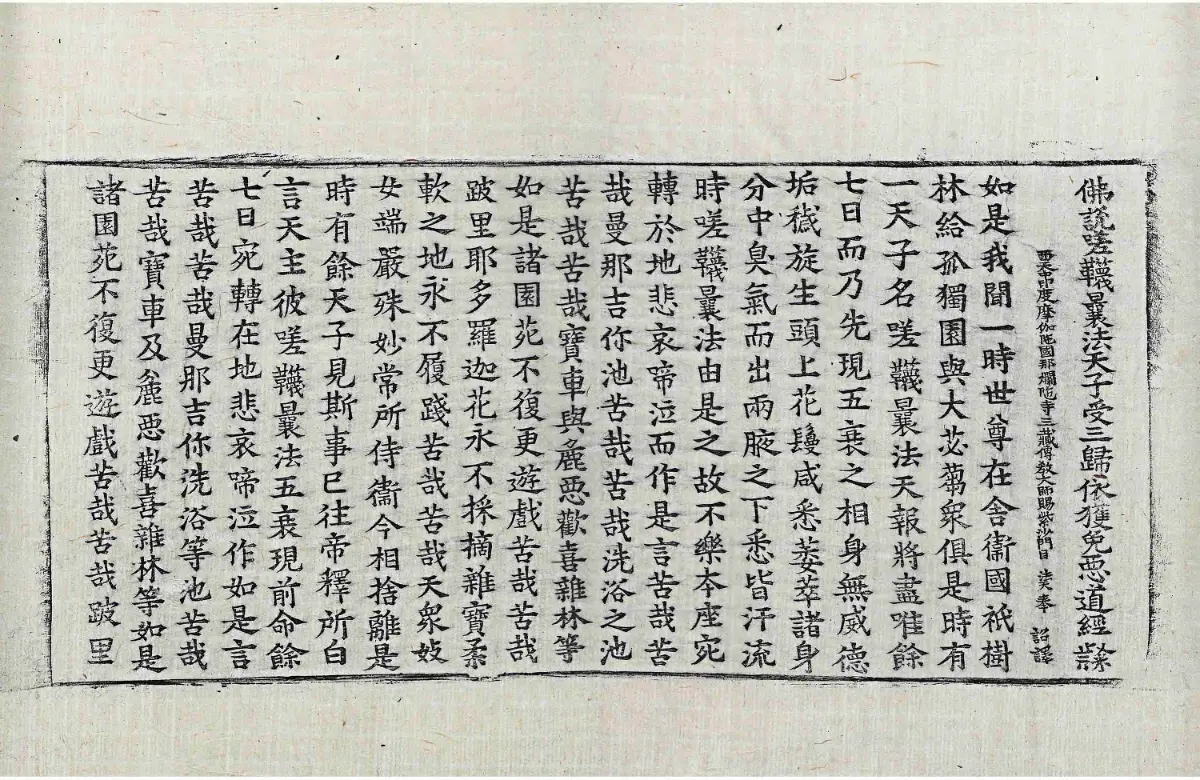 佛說嗟韈曩法天子受三歸依獲免惡道經
西天中印度摩伽陁國那爛陁寺三藏傳教大師賜紫沙門臣 法天奉 詔譯
如是我聞一時世尊在舍衞國祇樹
林給孤獨園與大苾蒭衆俱是時有
一天子名嗟韈曩法天報將盡唯餘
七日而乃先現五衰之相身無威德
垢穢旋生頭上花鬘咸悉萎萃諸身
分中臭氣而出兩腋之下悉皆汗流
時嗟韈曩法由是之故不樂本座宛
轉於地悲哀啼泣而作是言苦哉苦
哉曼那吉你池苦哉苦哉洗浴之池
苦哉苦哉寶車與麁惡歡喜雜林等
如是諸園苑不復更遊戲苦哉苦哉
跛里耶多羅迦花永不採摘雜寶柔
軟之地永不履踐苦哉苦哉天衆妓
女端嚴殊妙常所侍衞今相捨離是
時有餘天子見斯事已往帝釋所白
言天主彼嗟韈曩法五衰現前命餘
七日宛轉在地悲哀啼泣作如是言
苦哉苦哉曼那吉你洗浴等池苦哉
苦哉寶車及麁惡歡喜雜林等如是
諸園苑不復更遊戲苦哉苦哉跛里